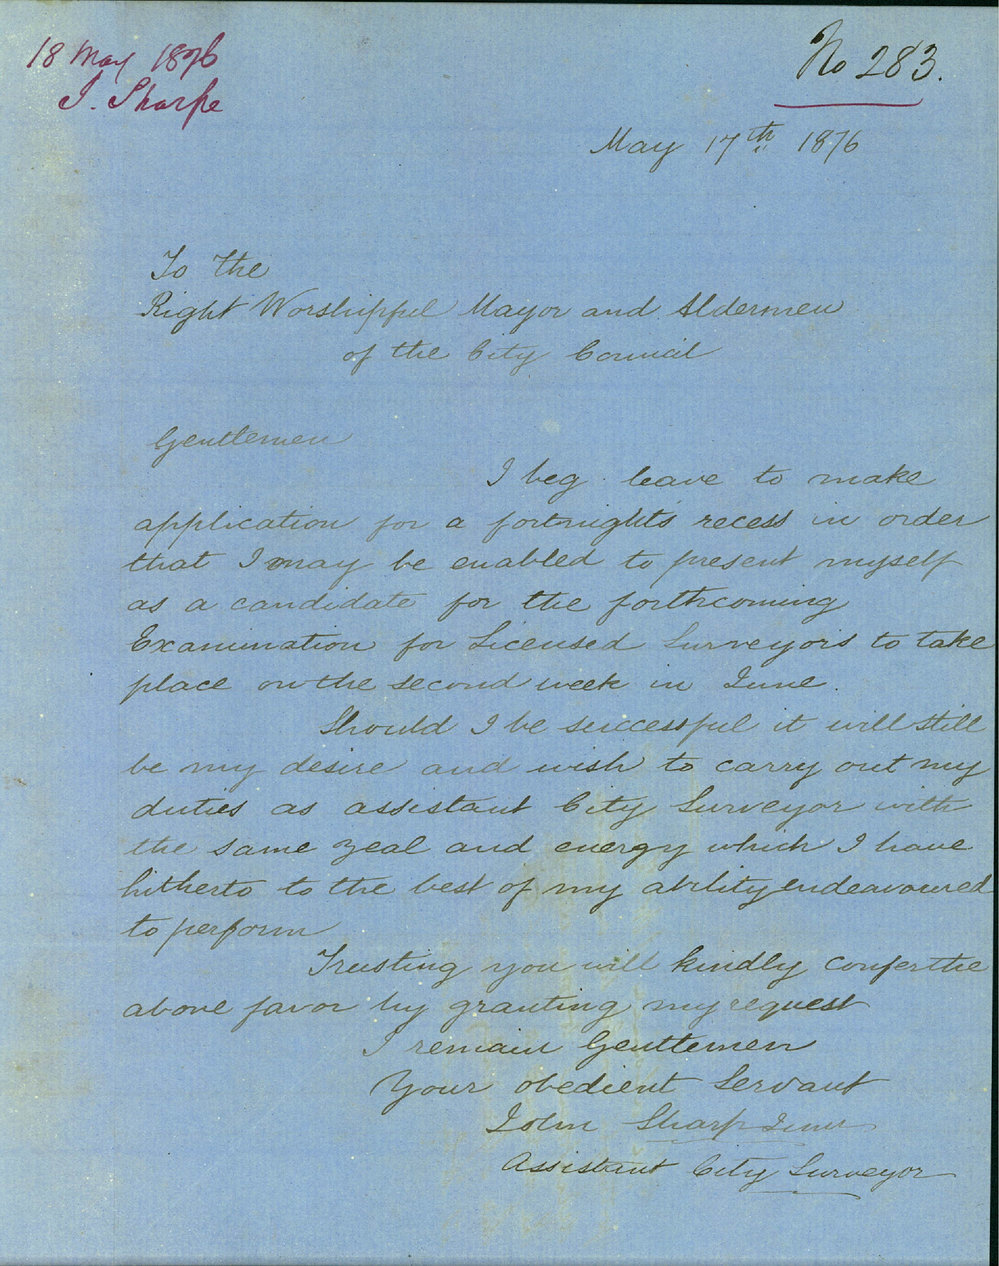 18 May 1876
J. Sharpe
No 283.
May 17th 1876
To the
Right Worshipful Mayor and Aldermen
of the City Council
Gentlemen
I beg leave to make
application for a fortnights recess in order
that I may be enabled to present myself
as a candidate for the forthcoming
Examination for Licensed Surveyors to take
place on the second week in June.
Should I be successful it will still
be my desire and wish to carry out my
duties as assistant City Surveyor with
the same zeal and energy which I have
hitherto to the best of my ability endeavoured
to perform
Trusting you will kindly confer the
above favor by granting my request
I remain Gentlemen
Your obedient Servant
John Sharp Junr
Assistant City Surveyor